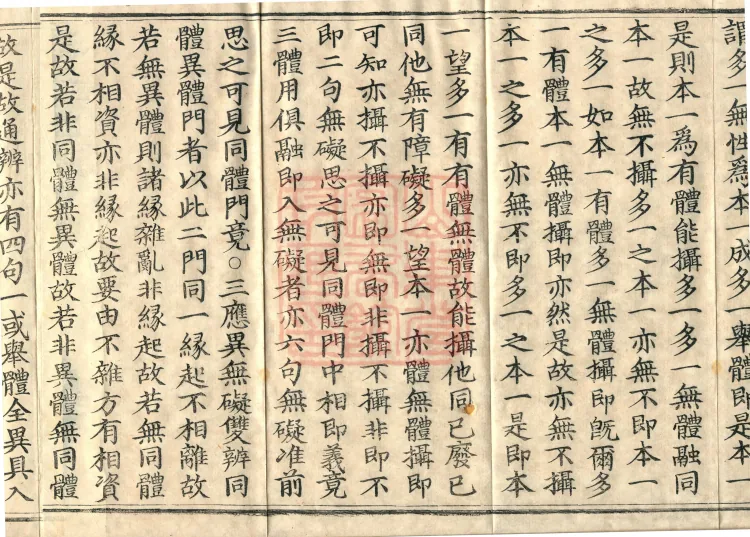 謂多一無性爲本一成多一舉體即是本一
是則本一爲有體能攝多一多一無體融同
本一故無不攝多一之本一亦無不即本一
之多一如本一有體多一無體攝即旣爾多
一有體本一無體攝即亦然是故亦無不攝
本一之多一亦無不即多一之本一是即本
一望多一有有體無體故能攝他同已廢已
同他無有障礙多一望本一亦體無體攝即
可知亦攝不攝亦即無即非攝不攝非即不
即二句無礙思之可見同體門中相即義竟
三體用俱融即入無礙者亦六句無礙准前
思之可見同體門竟。三應異無礙雙辨同
體異體門者以此二門同一緣起不相離故
若無異體則諸緣雜亂非緣起故若無同體
緣不相資亦非緣起故要由不雜方有相資
是故若非同體無異體故若非異體無同體
故是故通辨亦有四句一或舉體全異具入